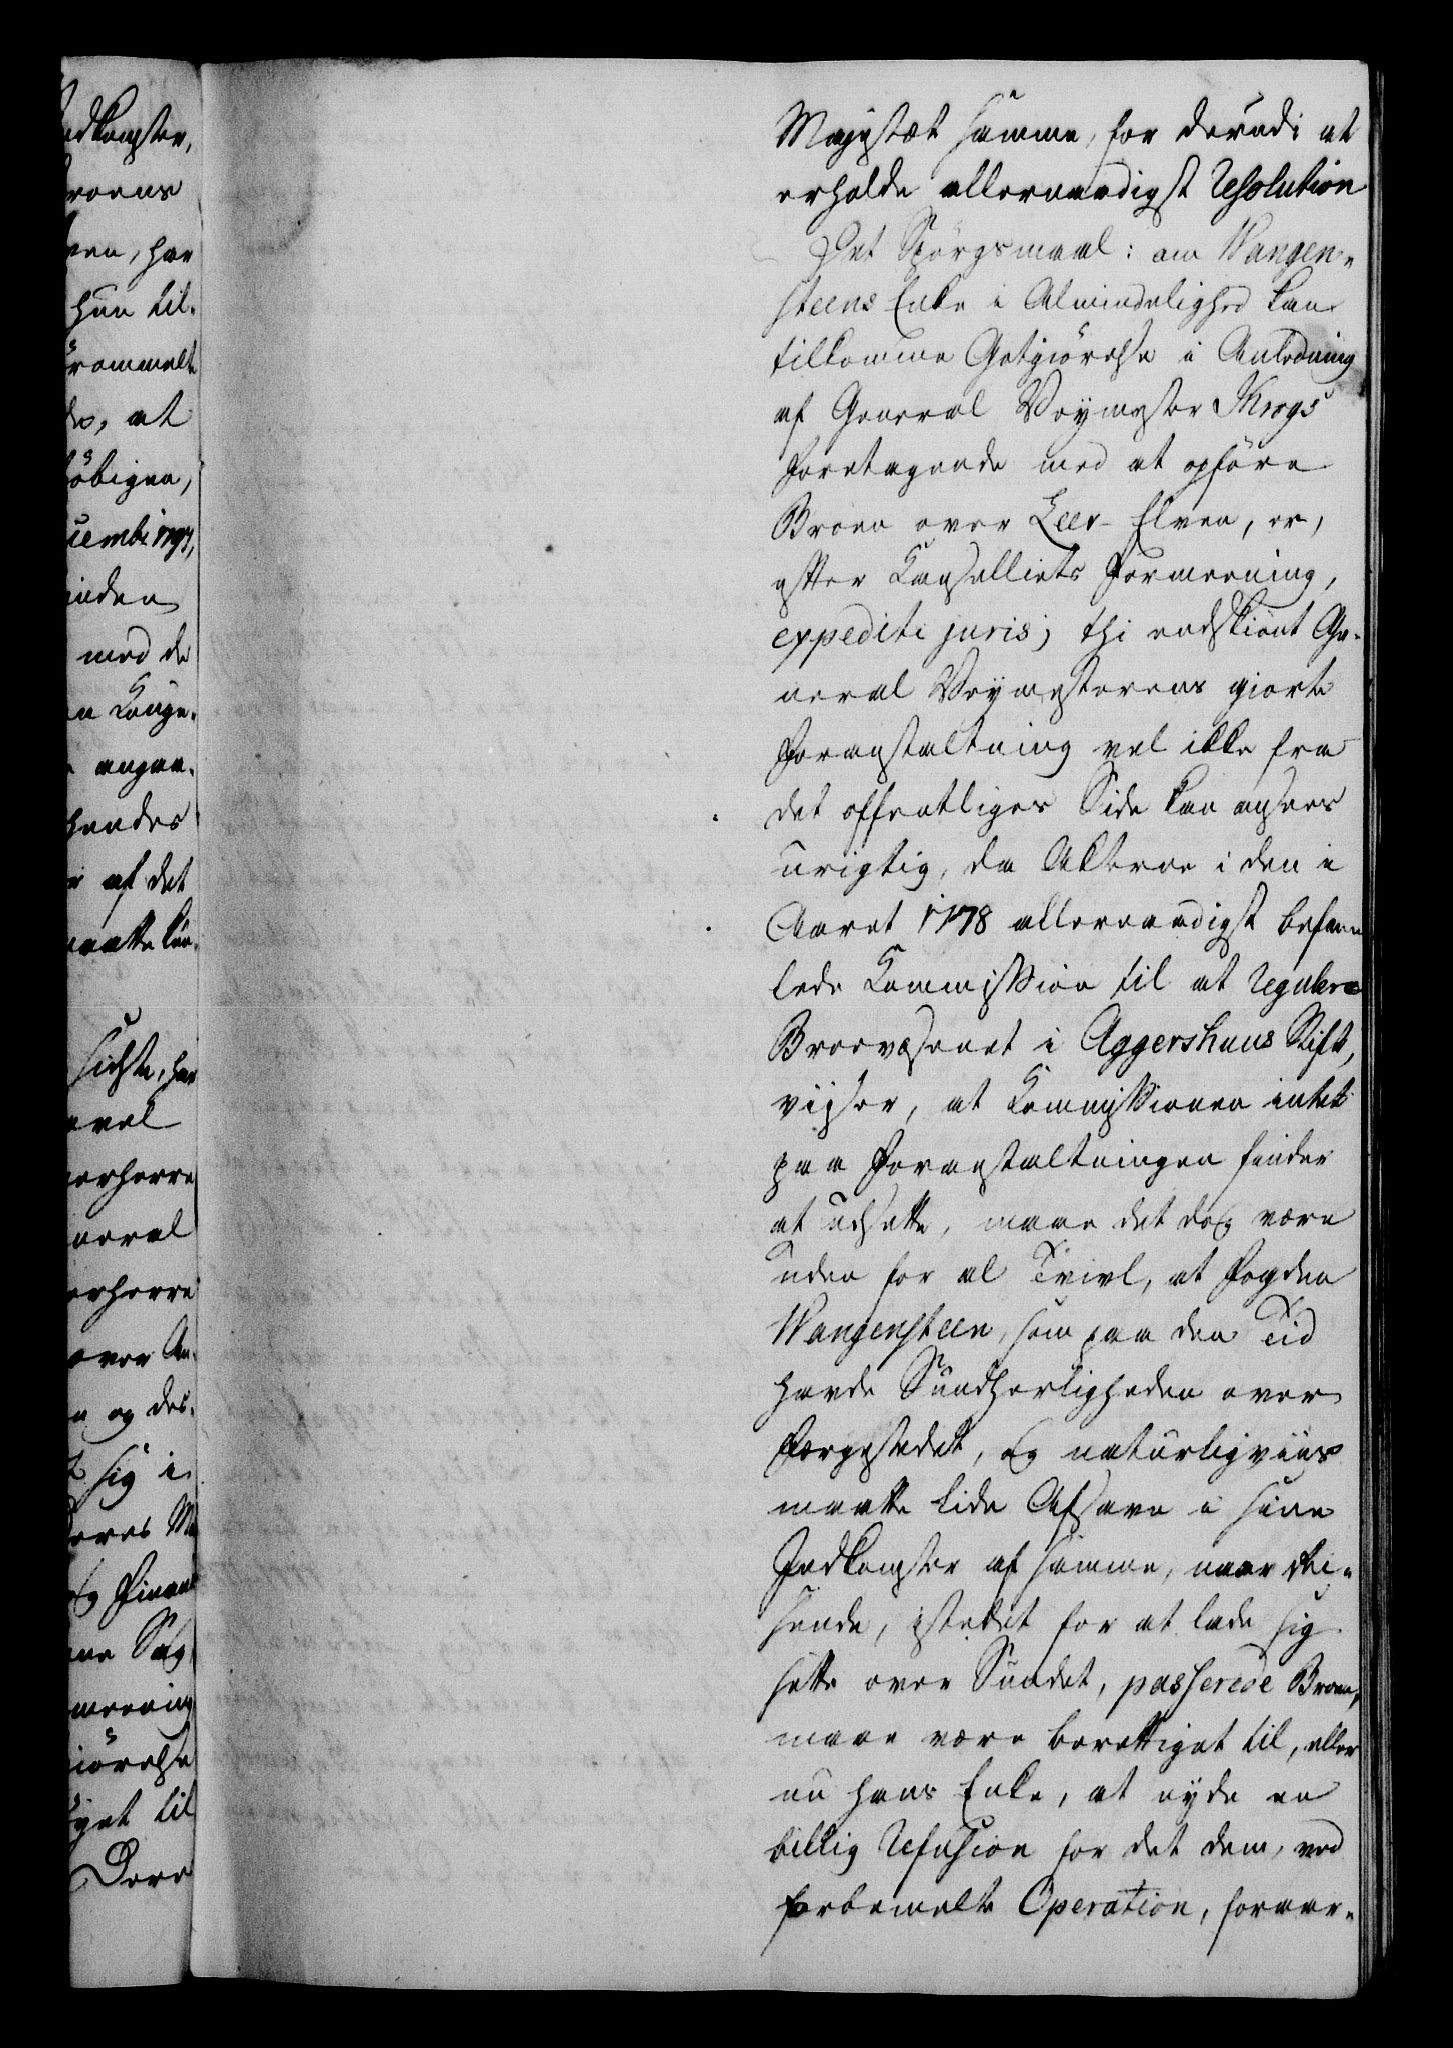 Majestæt samme, for derudi at
erholde allernaadigst Resolution
Det Spörgsmaal: om Wangen-
steens Enke i Almindelighed kan
tilkomme Godtgiörelse i Anledning
af General Veymester Krogs
Foretagende med at opföre
Broen over Leer-Elven, er,
efter Canselliets Formeening,
expediti juris; thi endskiönt Ge-
neral Veymesterens giorte
Foranstaltning vel ikke fra
det offentliges Side kan ansees
urigtig, da Acterne i den i
Aaret 1778 allernaadigst befa-
lede Commission til at regulere
Broevæsenet i Aggershuus Stift,
viiser, at Commissionen intet
paa Foranstaltningen finder
at udsætte, maae det dog være
uden for al Tvivl, at Fogden
Wangensteen, som paa den Tid
havde Sundherligheden over
Færgestedet, og naturligviis
maatte lide Afsavn i sine
Indkomster af samme, naar Rei-
sende, istedet for at lade sig
sætte over Sundet, passerede Broen,
maae være berettiget til, eller
nu hans Enke, at nyde en
billig Refusion for det dem, ved
forbemelte Operation, foraar-
ndkomster,
roens
ven, har
hun til-
at
inden
med de
angaa-
hendes
af det
neral
over An-
og des-
sig i
til
Dere